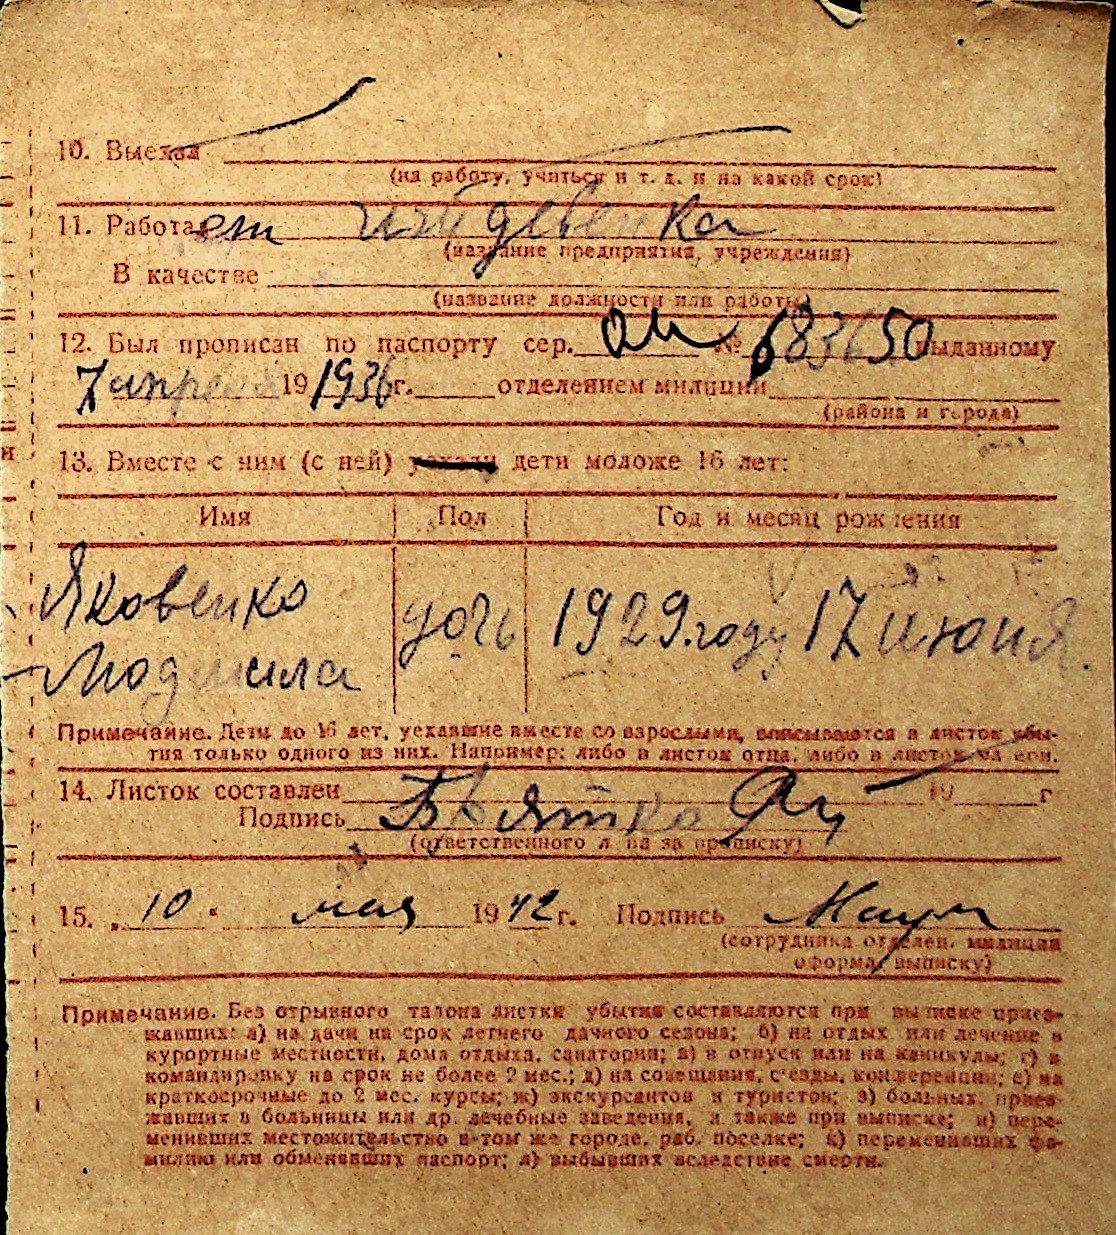 10. Выехал
(на работу, учиться и т. д. и на какой срок)
11. Работает иждевенка
(название предприятия, учреждения)
В качестве
(название должности или работы)
12. Был прописан по паспорту сер. № 683650 выданному
7 апреля 19 1936 г. отделением милиции
(района и города)
13. Вместе с ним (с ней) уехали дети моложе 16 лет:
Имя Пол Год и месяц рождения
Яковенко Людмила дочь 1929. году 17 июня.
Примечание. Дети до 16 лет, уехавшие вместе со взрослыми, вписываются в листок убы-
тия только одного из них. Например: либо в листок отца, либо в листок матери.
14. Листок составлен 19 г
Подпись
(ответственного лица за прописку)
15. „ 10 " мая 1942 г. Подпись
(сотрудника отделен. милиции
оформл. выписку)
Примечание. Без отрывного талона листки убытия составляются при выписке приез-
жавших: а) на дачи на срок летнего дачного сезона; б) на отдых или лечение в
курортные местности, дома отдыха, санатории; в) в отпуск или на каникулы; г) в
командировку на срок не более 2 мес.; д) на совещания, съезды, конференции; е) на
краткосрочные до 2 мес. курсы; ж) экскурсантов и туристов; з) больных, приез-
жавших в больницы или др. лечебные заведения, а также при выписке; и) пере-
менивших местожительство в том же городе, раб. поселке; к) переменивших фа-
милию или обменявших паспорт; л) выбывших вследствие смерти.